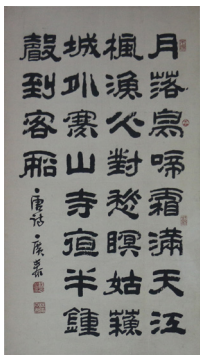 月落烏啼霜滿天江
楓漁火對愁瞑姑蘇
城外寒山寺亱半鍾
聲到客船
唐詩